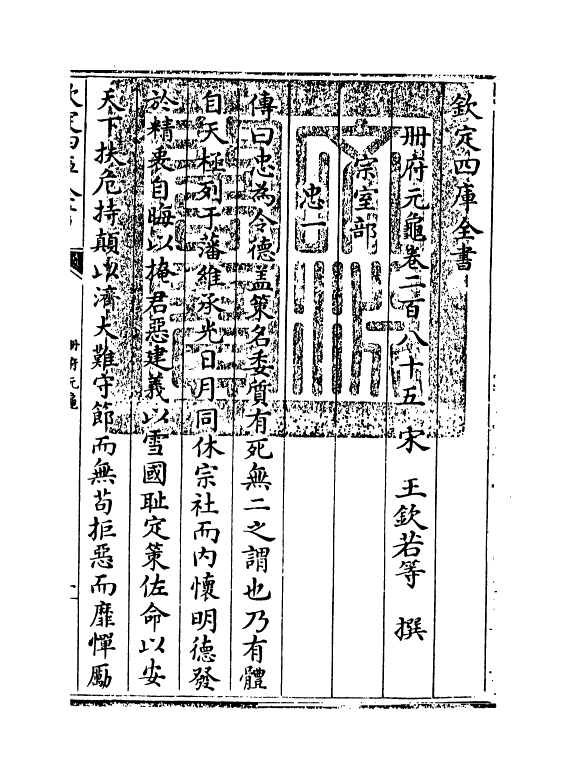 欽定四庫全書
冊府元龜卷二百八十五　宋　王欽若等　撰
宗室部
忠一
傳曰忠為令德盖策名委質有死無二之謂也乃有體
自天極列于藩維承光日月同休宗社而内懷明德發
於精衷自晦以掩君惡建義以雪國耻定策佐命以安
天下扶危持顛以濟大難守節而無茍拒惡而靡憚勵
欽定四庫全書
冊府元龜
一